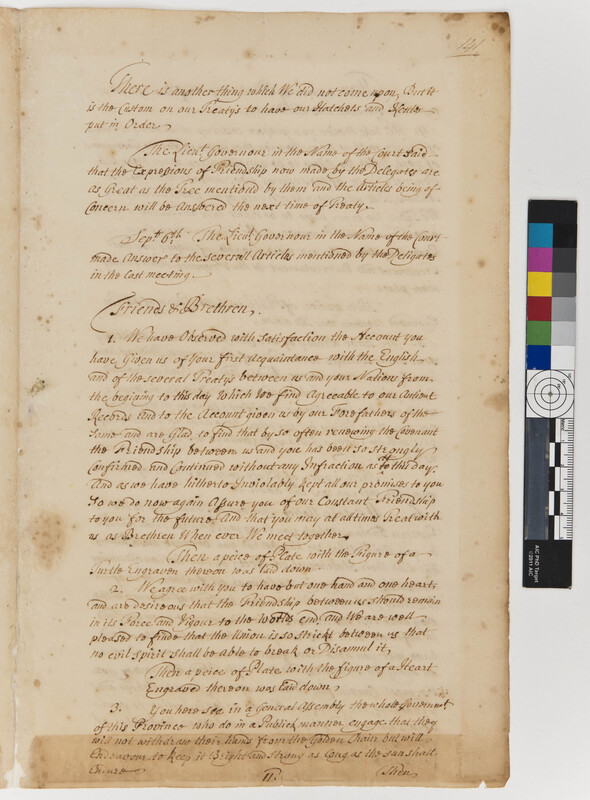 141
There is another thing which We did not come upon, But it
is the Custom on our Treaty's to have our Hatchets and Kettles
put in Order,
The Lieut. Governour in the Name of the Court said
that the Expressions of Friendship now made by the Delegates are
as Great as the Tree mentiond by them and the Articles being of
Concern will be Answered the next time of Treaty.
Sept. 6th. The Lieut. Governour in the Name of the Court
made Answer to the severall Articles mentioned by the Deligates
in the last meeting.
Friends & Brethren,
1. We have Observed with Satisfaction the Account you
have Given us of Your first Acquaintance with the English
and of the several Treaty's between us and your Nations from
the begining to this day Which We find Agreeable to our Antient
Records and to the Account given us by our Forefathers of the
Same and are Glad, to find that by so often renewing the Covenant
the Friendship between us and you has been so strongly
Confirmed and Continued without any Infraction as to this day;
And as we have hitherto Inviolably kept all our promises to you
So we do now again Assure you of our Constant Friendship
to you for the future, And that you may at all times Treat with
us as Brethren When ever We meet together,
Then a peice of Plate with the Figure of a
Turtle Engraven thereon was laid down.
2. We agree with you to have but one hand and one heart,
and are desireous that the Friendship between us should remain
in its Force and Vigour to the Worlds end, and We are well
pleased to finde that the Union is so strickt between us that
no evil spirit shall be able to break or Disannul it,
Then a peice of Plate with the figure of a Heart
Engraved thereon was laid down,
3. You here see in a General Assembly the whole Government
of this Province who do in a Publick manner engage that they
will not withdraw their hands from the Golden Chain but will
Endeavour to keep it Bright and strong as Long as the sun shall
Endure
11.
Then
AIC PhD Target
©2011 AIC